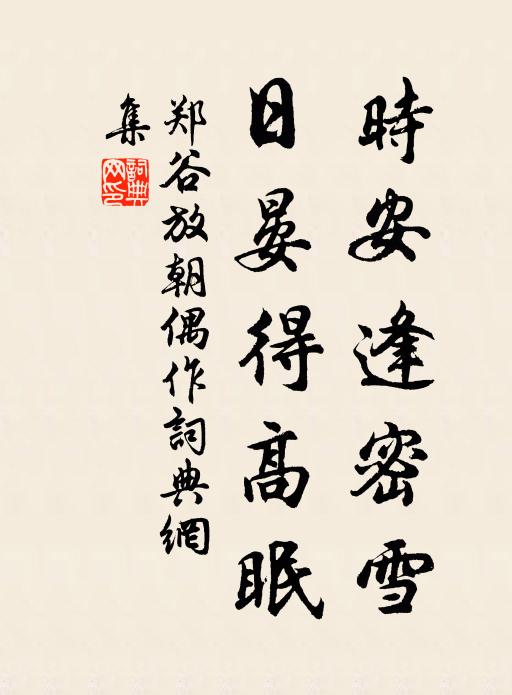 時安逢密雪
日晏得高眠
郑谷放朝偶作詞典網
集
詞典網印